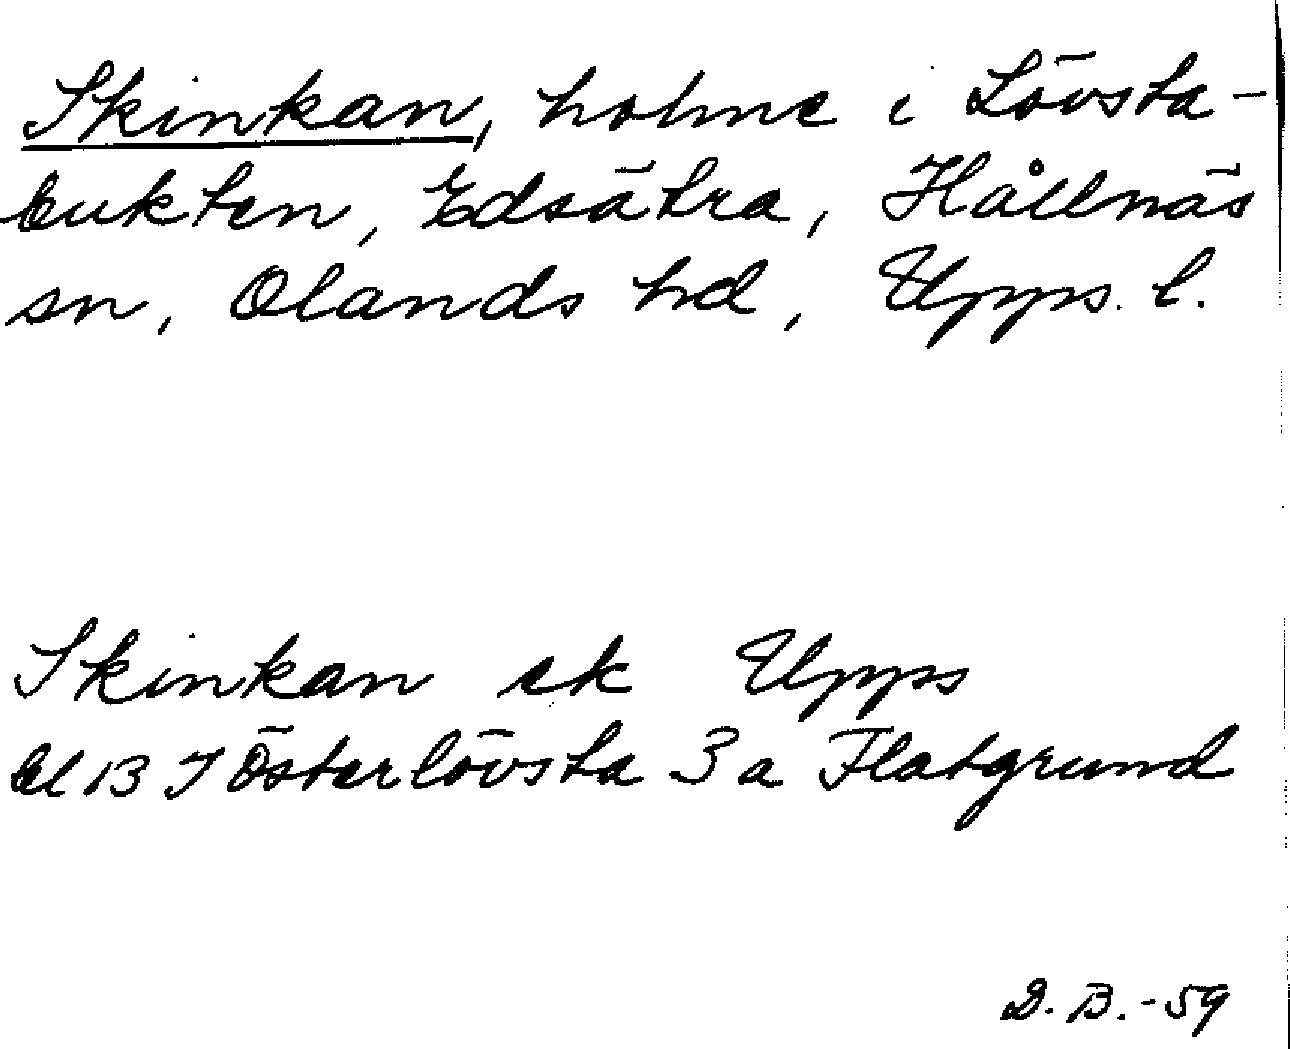 Skinkan, holme i Lövsta-
bukten, Edsätra, Hållnäs
sn, Olands hd, Upps. l.
Skinkan ek Upps
bl 13 I Österlövsta 3 a Flatgrund
D. B. -59